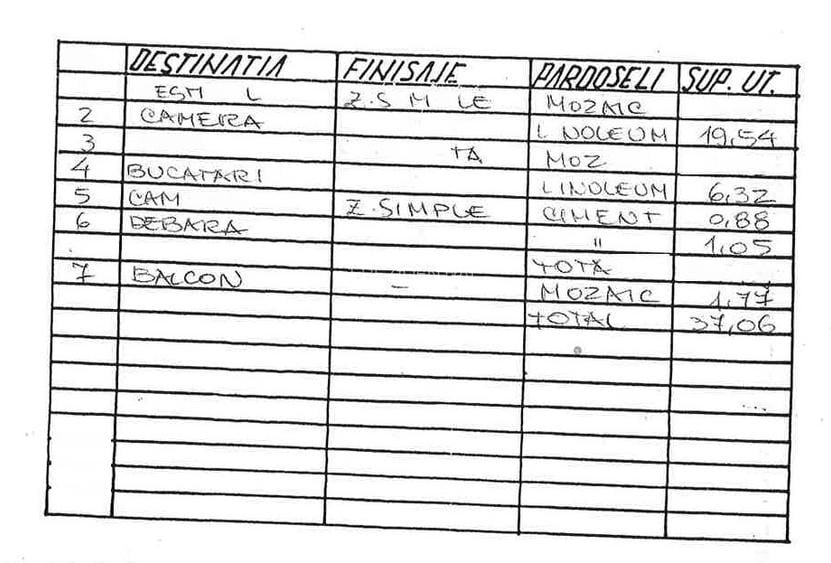 DESTINATIA FINISAJE PARDOSELI SUP. UT.
MOZAIC
2 CAMERA LINOLEUM 19,54
3 MOZ
4 BUCATARI LINOLEUM 6,32
5 CAM Z.SIMPLE CIMENT 0,88
6 DEBARA " 1,05
TOTA
7 BALCON – MOZAIC 1,77
TOTAL 37,06